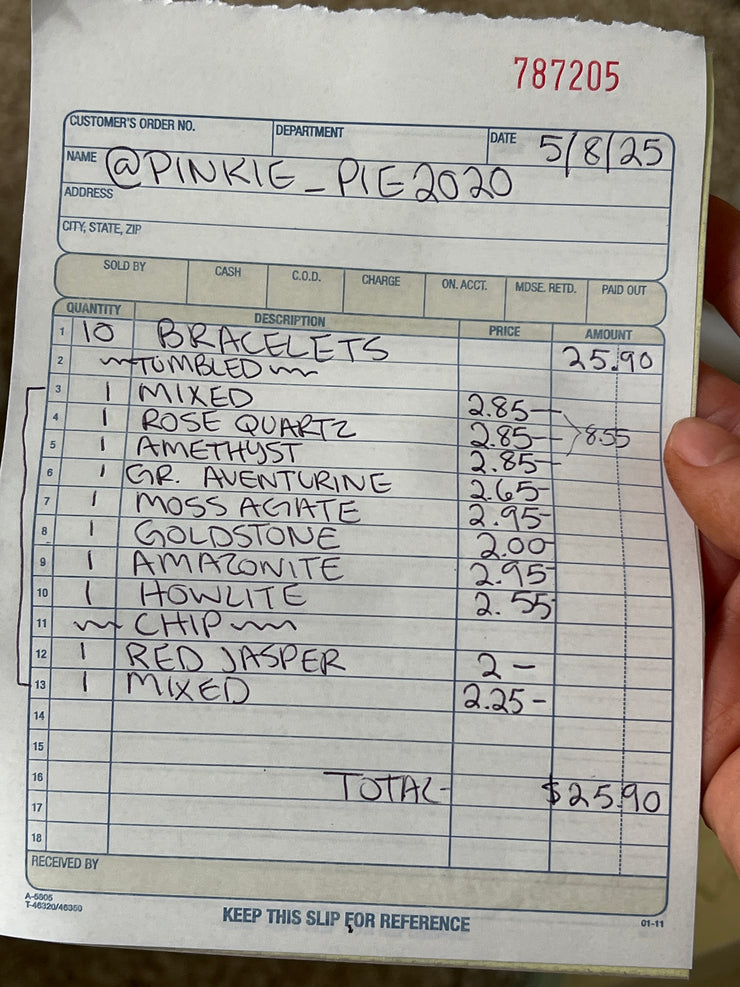 787205
CUSTOMER'S ORDER NO. DEPARTMENT DATE 5/8/25
NAME @PINKIE_PIE2020
ADDRESS
CITY, STATE, ZIP
SOLD BY CASH C.O.D. CHARGE ON. ACCT. MDSE. RETD. PAID OUT
QUANTITY DESCRIPTION PRICE AMOUNT
1 10 BRACELETS 25.90
2 ~TUMBLED~
3 1 MIXED 2.85-
4 1 ROSE QUARTZ 2.85- 8.55
5 1 AMETHYST 2.85-
6 1 GR. AVENTURINE 2.65-
7 1 MOSS AGATE 2.95-
8 1 GOLDSTONE 2.00-
9 1 AMAZONITE 2.95-
10 1 HOWLITE 2.55-
11 ~CHIP~
12 1 RED JASPER 2-
13 1 MIXED 2.25-
14
15
16 TOTAL- $25.90
17
18
RECEIVED BY
A-5805
T-46320/46350
KEEP THIS SLIP FOR REFERENCE
01-11